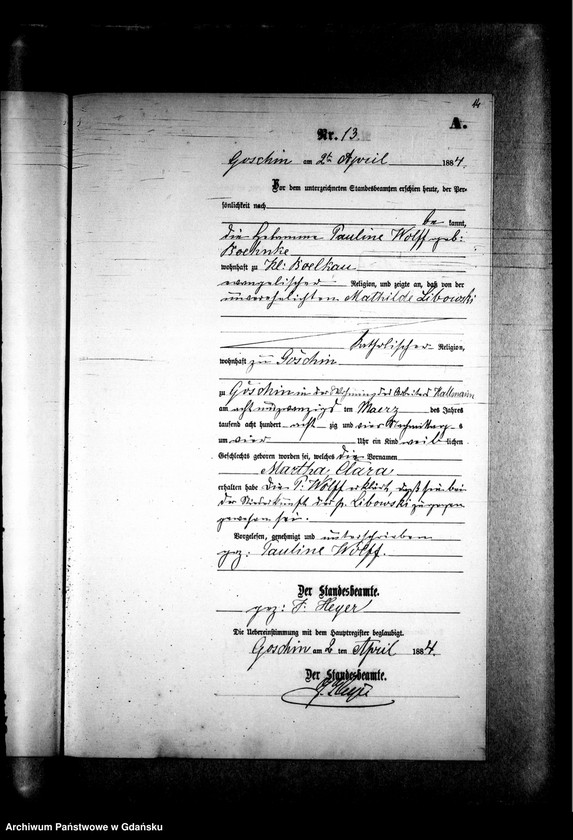 14
A.
Nr. 13.
Goschin am 2ten April 1884.
Vor dem unterzeichneten Standesbeamten erschien heute, der Per-
sönlichkeit nach
be kannt,
die Hebamme Pauline Wolff geb:
Boehnke
wohnhaft zu Kl: Boelkau
evangelischer Religion, und zeigte an, daß von der
unverehelichten Mathilde Libowski
katholischer Religion,
wohnhaft zu Goschin
zu Goschin in der Wohnung des Arbeiters Hallmann
am acht und zwanzigs ten Maerz des Jahres
tausend acht hundert acht zig und vier Nachmittag s
um vier Uhr ein Kind weib lichen
Geschlechts geboren worden sei, welches die Vornamen
Martha, Clara
erhalten habe die p. Wolff erklärt, daß sie bei
der Niederkunft der p. Libowski zugegen
gewesen sei.
Vorgelesen, genehmigt und unterschrieben
gez: Pauline Wolff.
Der Standesbeamte.
gez: F. Heyer
Die Uebereinstimmung mit dem Hauptregister beglaubigt.
Goschin am 2 ten April 1884.
Der Standesbeamte.
F. Heyer
Archiwum Państwowe w Gdańsku